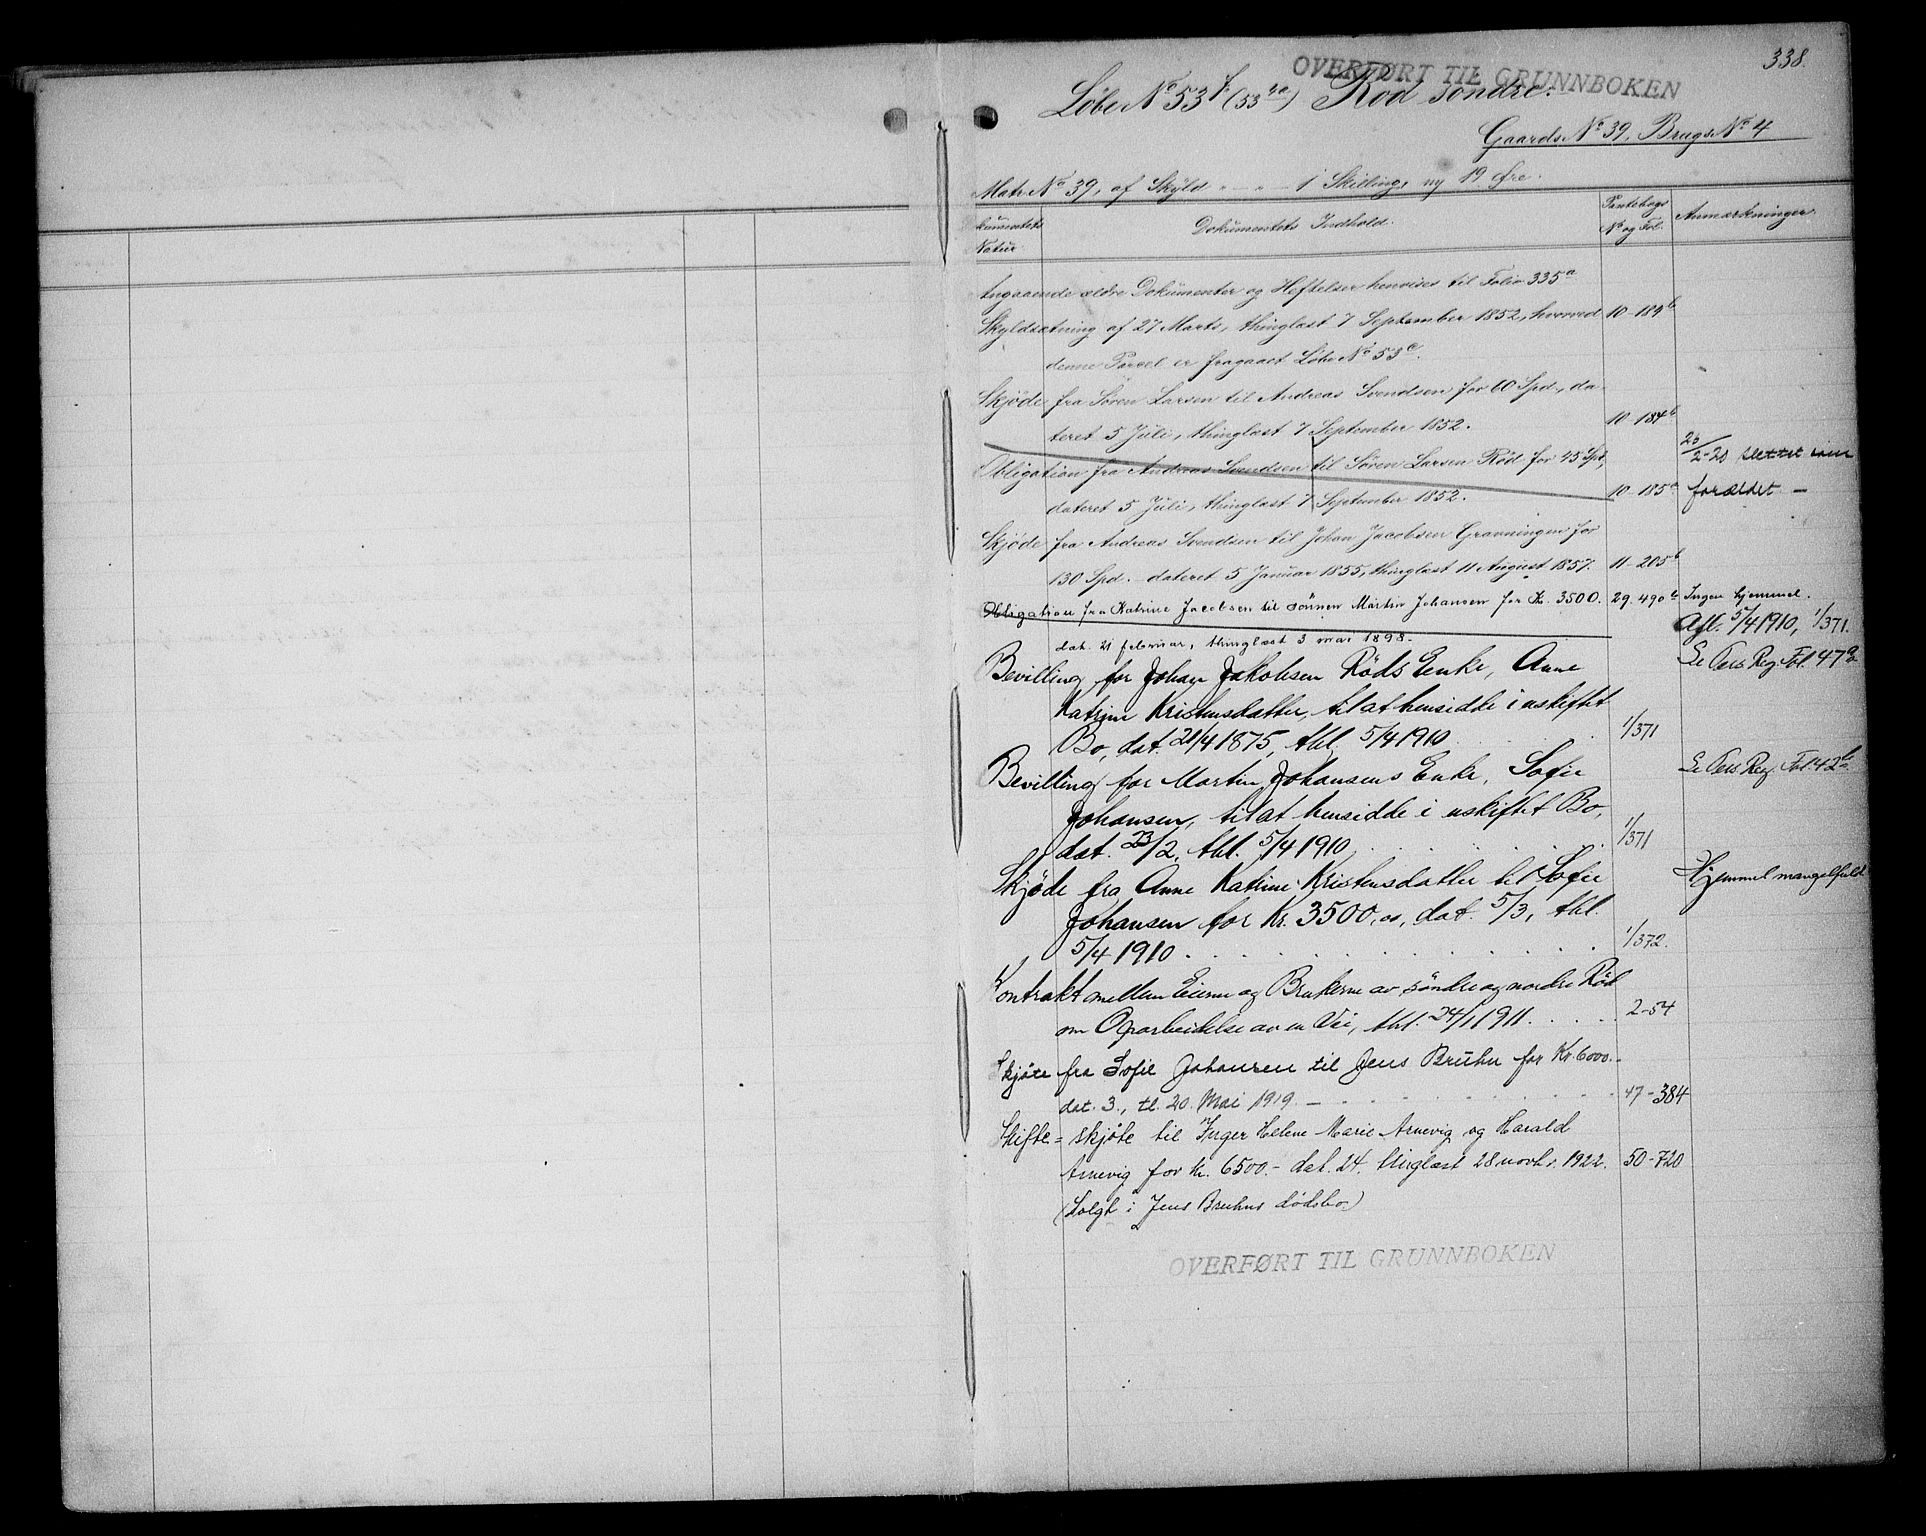 338.
OVERFØRT TIL GRUNNBOKEN
Löbe No 53 f (53 ) Röd söndre.
Gaards No 39, Brugs No 4
Matr No 39, af Skyld " - " - 1 Skilling, ny 19 Øre.
Dokumentets Indhold.
Pantebogs
No og Fol.
Anmærkninger.
Natur
Angaaende ældre Dokumenter og Heftelser henvises til Folio 335 a
Skyldsætning af 27 Marts, thinglæst 7 September 1852, hvorved 10-184 b
denne Parcel er fragaaet Löbe No 53 e.
Skjöde fra Sören Larsen til Andreas Svendsen for 60 Spd., da-
teret 5 Juli, thinglæst 7 September 1852. 10-184 b
Obligation fra Andreas Svendsen til Sören Larsen Röd for 45 Spd, /2-20 slettet som
dateret 5 Juli, thinglæst 7 September 1852. 10-185 a forældet -
Skjöde fra Andreas Svendsen til Johan Jacobsen Gravningen for
130 Spd. dateret 5 Januar 1855, thinglæst 11 August 1857. 11-205 b
Obligation fra Katrine Jacobsen til sönnen Martin Johansen for Kr. 3500. 29.490 b Ingen hjemmel.
dat. 21 februar, thinglæst 3 mai 1898. Afl. 5/4 1910, 1/371.
Bevilling for Johan Jakobsen Röds Enke, Anne Se Pers Reg. Fol. 47 a
Katrine Kristensdatter, til at hensidde i uskiftet
Bo, dat. 21/4 1875, thl. 5/4 1910 1/371
Bevilling for Martin Johansens Enke, Sofie Se Pers Reg. Fol. 42 b
Johansen, til at hensidde i uskiftet Bo,
dat. 23/2, thl. 5/4 1910 1/371
Skjöde fra Anne Katrine Kristensdatter til Sofie Hjemmel mangelfuld
Johansen for Kr. 3500,00, dat. 5/3, thl.
5/4 1910 1/372.
Kontrakt mellem Eierne og Brukerne av söndre og nordre Röd
om Oparbeidelse av en Vei, thl. 24/1 1911. 2-54
Skjöte fra Sofie Johansen til Jens Bruhn for Kr 6000.-
dat. 3., tl. 20. Mai 1919. - 47-384
Skifte = skjöte til Inger Helene Marie Arnevig og Harald
Arnevig for kr. 6500.- dat. 24. tinglæst 28 novbr. 1922. 50-720
(Solgt i Jens Bruhns dödsbo)
OVERFØRT TIL GRUNNBOKEN